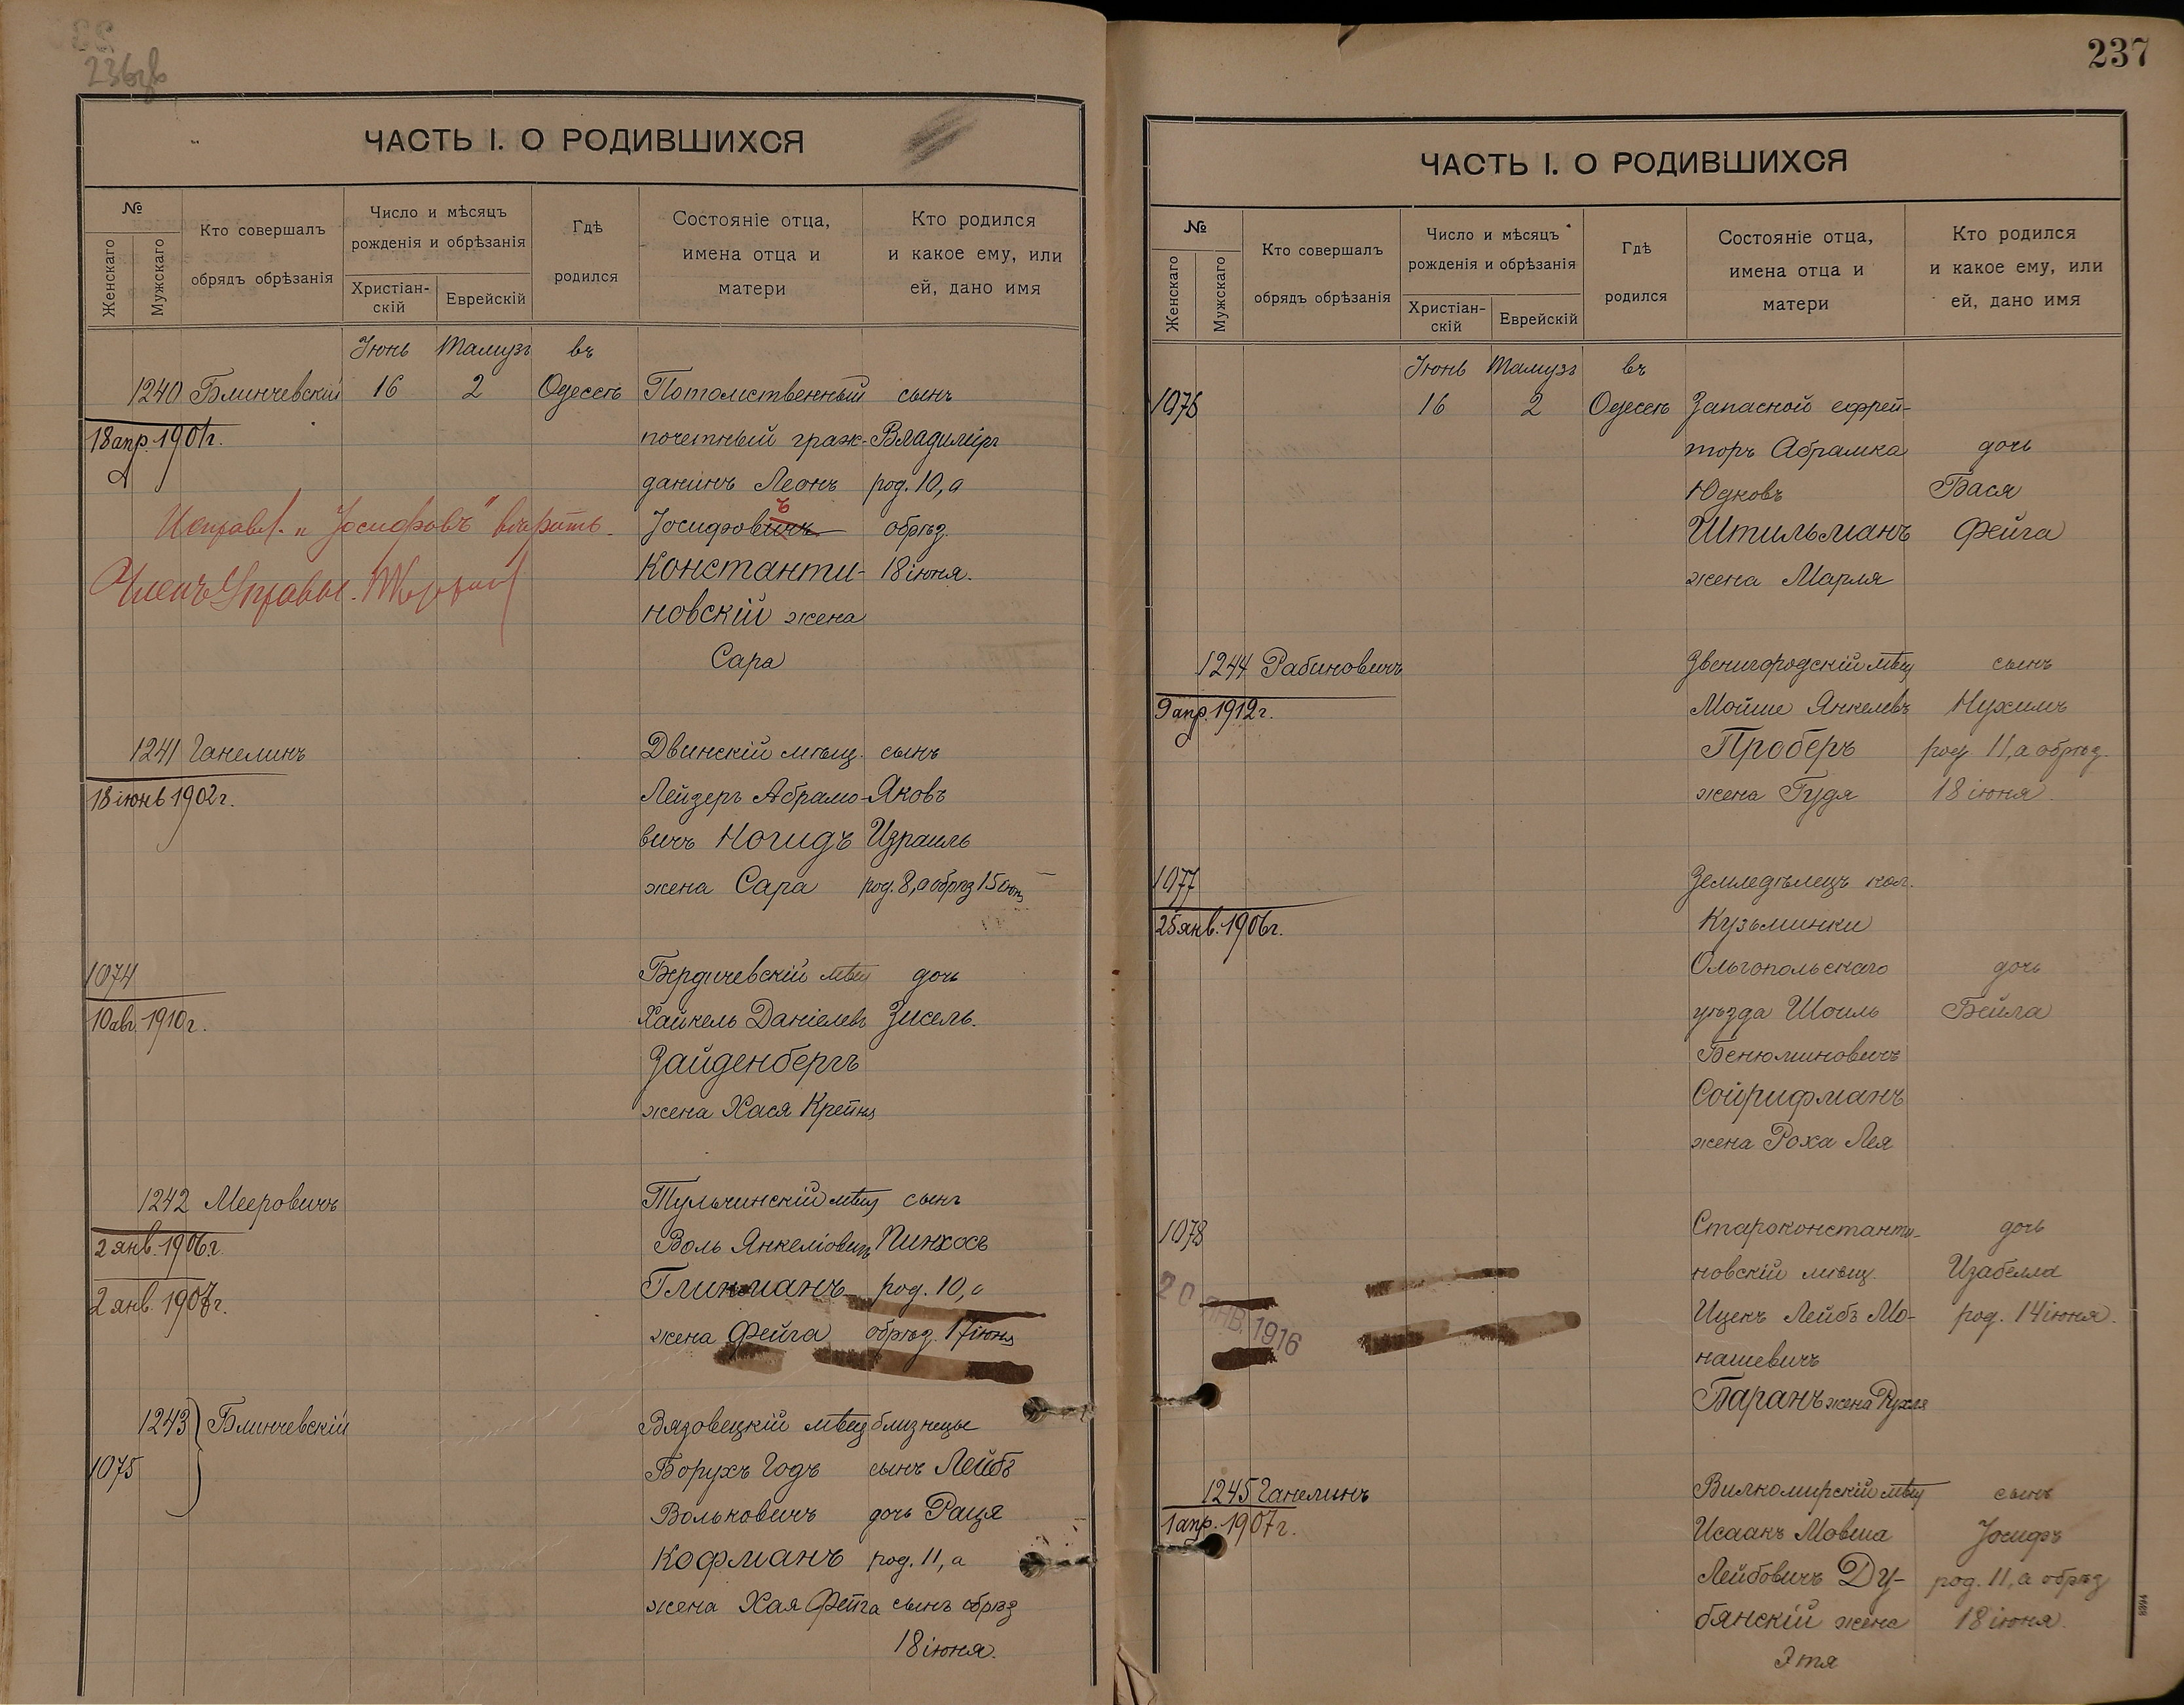 236об
ЧАСТЬ I. О РОДИВШИХСЯ
№
Женскаго
Мужскаго
Кто совершалъ
обрядъ обрѣзанія
Число и мѣсяцъ
рожденія и обрѣзанія
Христіан-
скій
Еврейскій
Гдѣ
родился
Состояніе отца,
имена отца и
матери
Кто родился
и какое ему, или
ей, дано имя
Іюнь Тамузъ въ
1240 Блинчевскій 16 2 Одессѣ Потомственный сынъ
18 апр. 1901 г. почетный граж- Владиміръ
данинъ Леонъ род. 10, а
Исправл. „Іосифовъ" вѣрить. Іосифовичъ ъ обрѣз.
Членъ Управы Константи- 18 іюня.
новскій жена
Сара
1241 Ганелинъ Двинскій мѣщ. сынъ
18 іюнь 1902 г. Лейзеръ Абрамо- Яковъ
вичъ Ногидъ Израиль
жена Сара род. 8, а обрѣз 15 іюн
1074 Бердичевскій мѣщ дочь
10 авг. 1910 г. Хайкель Даніелевъ Зисель.
Зайденбергъ
жена Хася Крейнц
1242 Мееровичъ Тульчинскій мѣщ сынъ
2 янв. 1906 г. Воль Янкеліовичъ Пинхосъ
Глинманъ род. 10, а
2 янв. 1907 г.
жена Фейга обрѣз. 17 іюня
1243 Блинчевскій Вязовецкій мѣщ близнецы
1075 Борухъ Годъ сынъ Лейбъ
Вольковичъ дочь Раця
Кофманъ род. 11, а
жена Хая Фейга сынъ обрѣз
18 іюня.
237
ЧАСТЬ I. О РОДИВШИХСЯ
№
Женскаго
Мужскаго
Кто совершалъ
обрядъ обрѣзанія
Число и мѣсяцъ
рожденія и обрѣзанія
Христіан-
скій
Еврейскій
Гдѣ
родился
Состояніе отца,
имена отца и
матери
Кто родился
и какое ему, или
ей, дано имя
Іюнь Тамузъ въ
1076 16 2 Одессѣ Запасной ефрей-
торъ Абрамка дочь
Юдковъ Бася
Штильманъ Фейга
жена Марля
1244 Рабиновичъ Звенигородскій мѣщ сынъ
9 апр. 1912 г. Мойше Янкелевъ Нухимъ
Проберъ род 11, а обрѣз.
жена Гудя 18 іюня.
1077 Земледѣлецъ кол.
25 янв. 1906 г. Кузьминки
Ольгопольскаго дочь
уѣзда Шоиль Бейла
Бенюминовичъ
Сойрифманъ
жена Роха Лея
1078 Староконстанти- дочь
новскій мѣщ. Изабелла
20 ЯНВ. 1916 Ицекъ Лейбъ Мо- род. 14 іюня.
нашевичъ
Баранъ жена Рухля
1245 Ганелинъ Вилкомирскій мѣщ сынъ
1 апр. 1907 г. Исаакъ Мовша Іосифъ
Лейбовичъ Ду- род. 11, а обрѣз
бянскій жена 18 іюня.
Этя